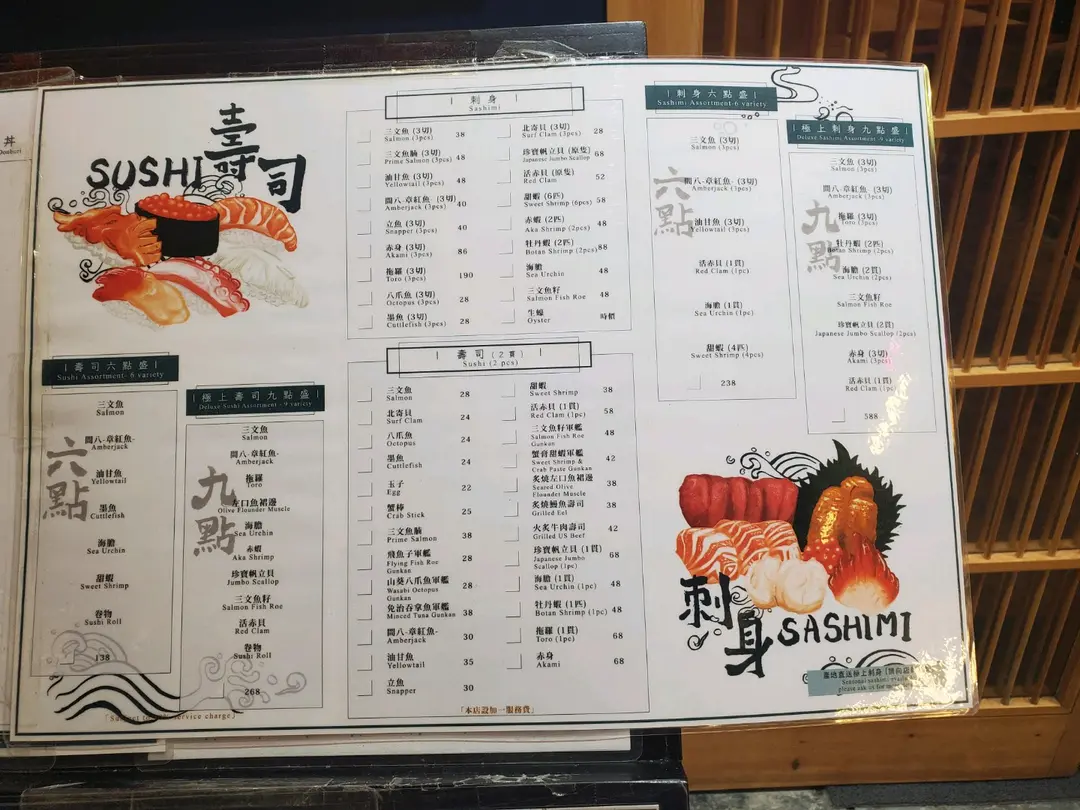 丼
壽司
SUSHI
| 壽司六點盛 |
Sushi Assortment- 6 variety
六點
三文魚
Salmon
間八-章紅魚-
Amberjack
油甘魚
Yellowtail
墨魚
Cuttlefish
海膽
Sea Urchin
甜蝦
Sweet Shrimp
卷物
Sushi Roll
138
| 極上壽司九點盛 |
Deluxe Sushi Assortment - 9 variety
九點
三文魚
Salmon
間八-章紅魚-
Amberjack
拖羅
Toro
左口魚裙邊
Olive Flounder Muscle
海膽
Sea Urchin
赤蝦
Aka Shrimp
珍寶帆立貝
Jumbo Scallop
三文魚籽
Salmon Fish Roe
活赤貝
Red Clam
卷物
Sushi Roll
268
service charge.)
| 刺身 |
Sashimi
三文魚 (3切) 38
Salmon (3pcs)
三文魚腩 (3切)
Prime Salmon (3pcs) 48
油甘魚 (3切) 48
Yellowtail (3pcs)
間八-章紅魚- (3切)
Amberjack (3pcs) 40
立魚 (3切) 40
Snapper (3pcs)
赤身 (3切) 86
Akami (3pcs)
拖羅 (3切) 190
Toro (3pcs)
八爪魚 (3切) 28
Octopus (3pcs)
墨魚 (3切) 28
Cuttlefish (3pcs)
北寄貝 (3切) 28
Surf Clam (3pcs)
珍寶帆立貝 (原隻) 68
Japanese Jumbo Scallop
活赤貝 (原隻) 52
Red Clam
甜蝦 (6匹) 58
Sweet Shrimp (6pcs)
赤蝦 (2匹) 48
Aka Shrimp (2pcs)
牡丹蝦 (2匹) 88
Botan Shrimp (2pcs)
海膽 48
Sea Urchin
三文魚籽 48
Salmon Fish Roe
生蠔 時價
Oyster
| 壽司 (2貫) |
Sushi (2 pcs)
三文魚 28
Salmon
北寄貝 24
Surf Clam
八爪魚 24
Octopus
墨魚 24
Cuttlefish
玉子 22
Egg
蟹棒 25
Crab Stick
三文魚腩 38
Prime Salmon
飛魚子軍艦 28
Flying Fish Roe
Gunkan
山葵八爪魚軍艦 28
Wasabi Octopus
Gunkan
免治吞拿魚軍艦 38
Minced Tuna Gunkan
間八-章紅魚- 30
Amberjack
油甘魚 35
Yellowtail
立魚 30
Snapper
甜蝦 38
Sweet Shrimp
活赤貝 (1貫) 58
Red Clam (1pc)
三文魚籽軍艦 48
Salmon Fish Roe
Gunkan
蟹膏甜蝦軍艦 42
Sweet Shrimp &
Crab Paste Gunkan
炙燒左口魚裙邊 38
Seared Olive
Flounder Muscle
炙燒鰻魚壽司 38
Grilled Eel
火炙牛肉壽司 42
Grilled US Beef
珍寶帆立貝 (1貫) 68
Japanese Jumbo
Scallop (1pc)
海膽 (1貫) 48
Sea Urchin (1pc)
牡丹蝦 (1匹) 48
Botan Shrimp (1pc)
拖羅 (1貫) 68
Toro (1pc)
赤身 68
Akami
「本店設加一服務費」
| 刺身六點盛 |
Sashimi Assortment-6 variety
六點
三文魚 (3切)
Salmon (3pcs)
間八-章紅魚- (3切)
Amberjack (3pcs)
油甘魚 (3切)
Yellowtail (3pcs)
活赤貝 (1貫)
Red Clam (1pc)
海膽 (1貫)
Sea Urchin (1pc)
甜蝦 (4匹)
Sweet Shrimp (4pcs)
238
| 極上刺身九點盛 |
Deluxe Sashimi Assortment -9 variety
九點
三文魚 (3切)
Salmon (3pcs)
間八-章紅魚- (3切)
Amberjack (3pcs)
拖羅 (3切)
Toro (3pcs)
牡丹蝦 (2匹)
Botan Shrimp (2pcs)
海膽 (2貫)
Sea Urchin (2pcs)
三文魚籽
Salmon Fish Roe
珍寶帆立貝 (2貫)
Japanese Jumbo Scallop (2pcs)
赤身 (3切)
Akami (3pcs)
活赤貝 (1貫)
Red Clam (1pc)
588
刺身 SASHIMI
產地直送極上刺身
Seasonal sashimi
please ask us for